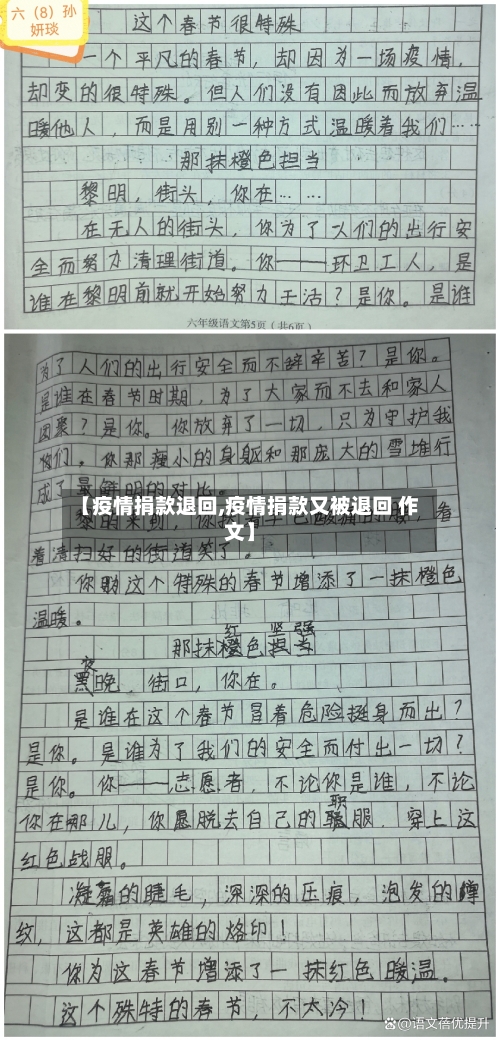 六（8）孙
妍琰
这个春节很特殊
一个平凡的春节，却因为一场疫情，
却变的很特殊。但人们没有因此而放弃温
暖他人，而是用别一种方式温暖着我们……
那抹橙色担当
黎明，街头，你在……
在无人的街头，你为了人们的出行安
全而努力清理街道。你——环卫工人，是
谁在黎明前就开始努力干活？是你。是谁
六年级语文第5页（共6页）
为了人们的出行安全而不辞辛苦？是你。
是谁在春节时期，为了大家而不去和家人
团聚？是你。你放弃了一切，只为守护我
们。你那瘦小的身躯和那庞大的雪堆行
成了最鲜明的对比。
【疫情捐款退回,疫情捐款又被退回 作
文】
黎明来到，你
着清扫好的街道笑了。
你助这个特殊的春节增添了一抹橙色
温暖。
红 坚强
那抹橙色担当
夜
黑晚，街口，你在。
是谁在这个春节冒着危险挺身而出？
是你。是谁为了我们的安全而付出一切？
是你。你——志愿者，不论你是谁，不论
职
你在哪儿，你愿脱去自己的服，穿上这
红色战服。
凝霜的睫毛，深深的压痕，泡发的
纹，这都是英雄的烙印！
你为这春节增添了一抹红色暖温。
这个殊特的春节，不太冷！
@语文蓓优提升